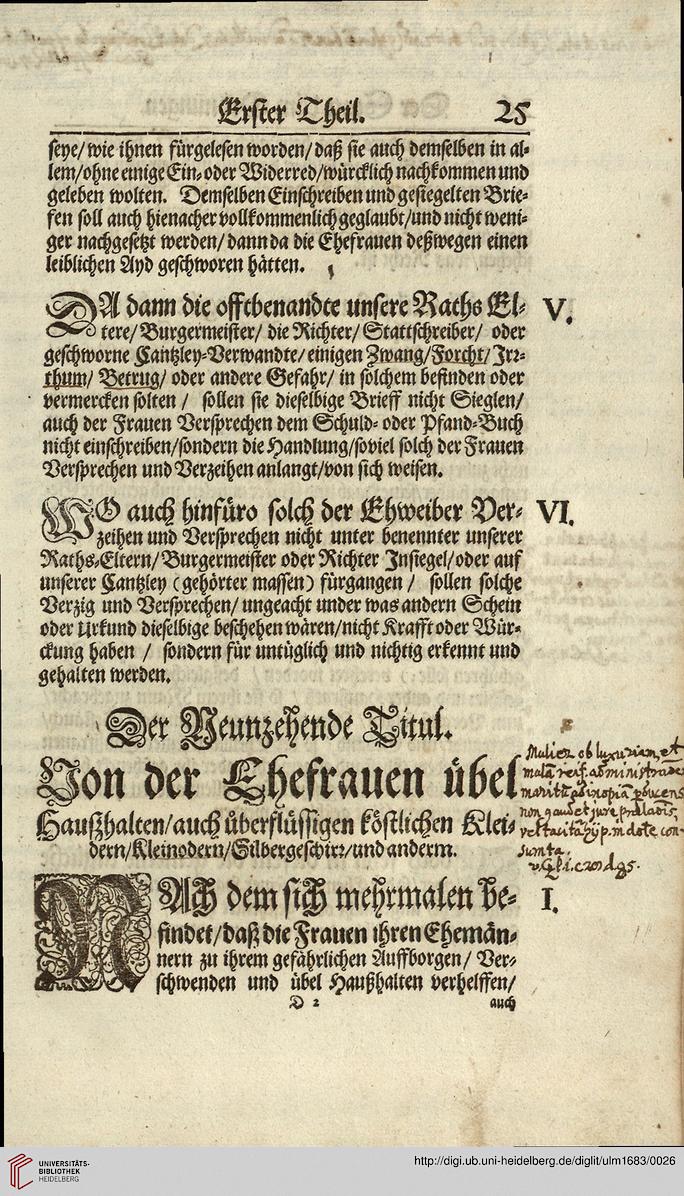 Erster Theil. 25
seye/ wie ihnen fürgelesen worden/ daß sie auch demselben in al-
lem/ ohne einige Ein- oder Widerred/ würcklich nachkommen und
geleben wolten. Demselben Einschreiben und gesiegelten Brie-
fen soll auch hienacher vollkommenlich geglaubt/ und nicht weni-
ger nachgesetzt werden/ dann da die Ehefrauen deßwegen einen
leiblichen Ayd geschworen hätten.
DA dann die offtbenandte unsere Raths El- V.
tere/ Burgermeister/ die Richter/ Stattschreiber/ oder
geschworne Cantzley-Verwandte/ einigen Zwang/ Forcht/ Irr-
thum/ Betrug/ oder andere Gefahr/ in solchem befinden oder
vermercken solten / sollen sie dieselbige Brieff nicht Sieglen/
auch der Frauen Versprechen dem Schuld- oder Pfand-Buch
nicht einschreiben/ sondern die Handlung/ soviel solch der Frauen
Versprechen und Verzeihen anlangt/ von sich weisen.
WO auch hinfüro solch der Ehweiber Ver- VI.
zeihen und Versprechen nicht unter benennter unserer
Raths-Eltern/ Burgermeister oder Richter Insiegel/ oder auf
unserer Cantzley (gehörter massen) fürgangen / sollen solche
Verzig und Versprechen/ ungeacht under was andern Schein
oder Urkund dieselbige beschehen wären/ nicht Krafft oder Wür-
ckung haben / sondern für untüglich und nichtig erkennt und
gehalten werden.
Der Neunzehende Titul.
Von der Ehefrauen übel
Haußhalten/ auch überflüssigen köstlichen Klei-
dern/ Kleinodern/ Silbergeschirr/ und anderm.
Mulier ob luxuriam et
malã rei f. administrat
maritũ ad inopiã
non gaudet jure prælationis
tacitæ hyp. in dote con-
sumta.
NAch dem sich mehrmalen be- I.
findet/ daß die Frauen ihren Ehemän-
nern zu ihrem gefährlichen Auffborgen/ Ver-
schwenden und übel Haußhalten verhelffen/
D 2 auch
UNIVERSITÄTS-
BIBLIOTHEK
HEIDELBERG
http://digi.ub.uni-heidelberg.de/diglit/ulm1683/0026